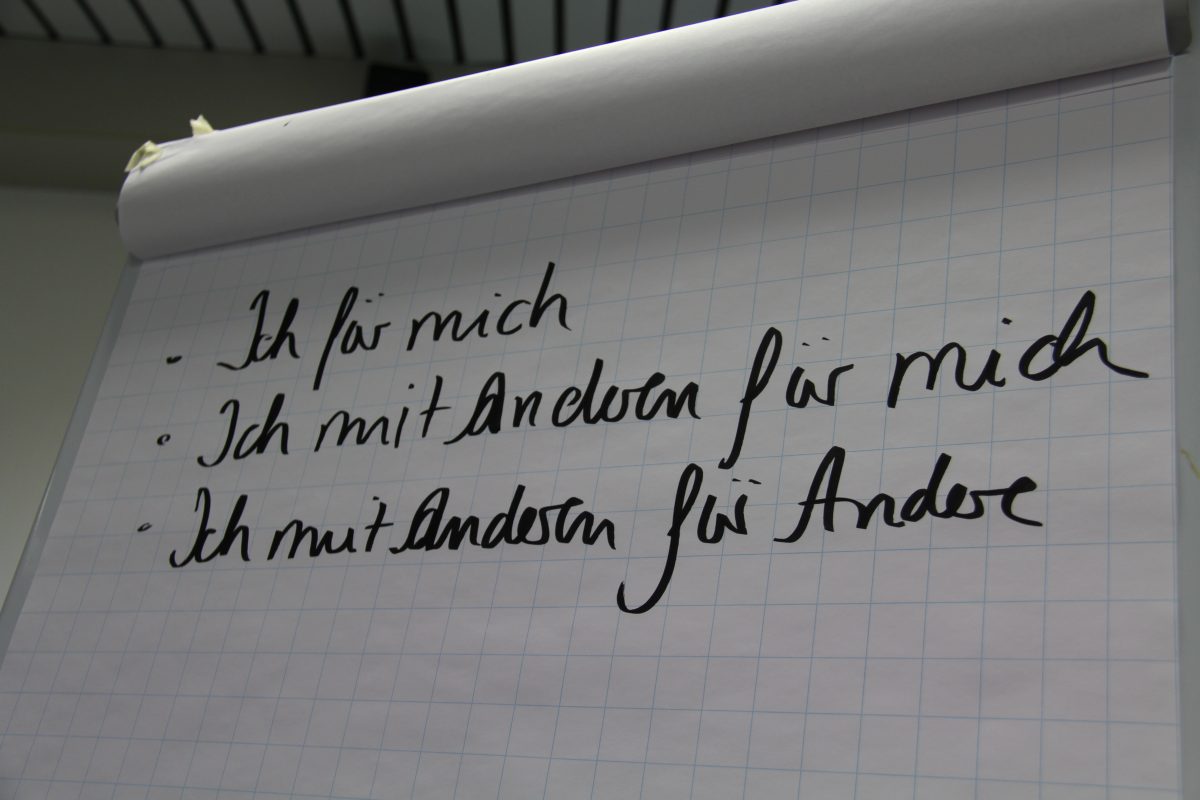 • Ich für mich
• Ich mit Anderen für mich
• Ich mit Anderen für Andere